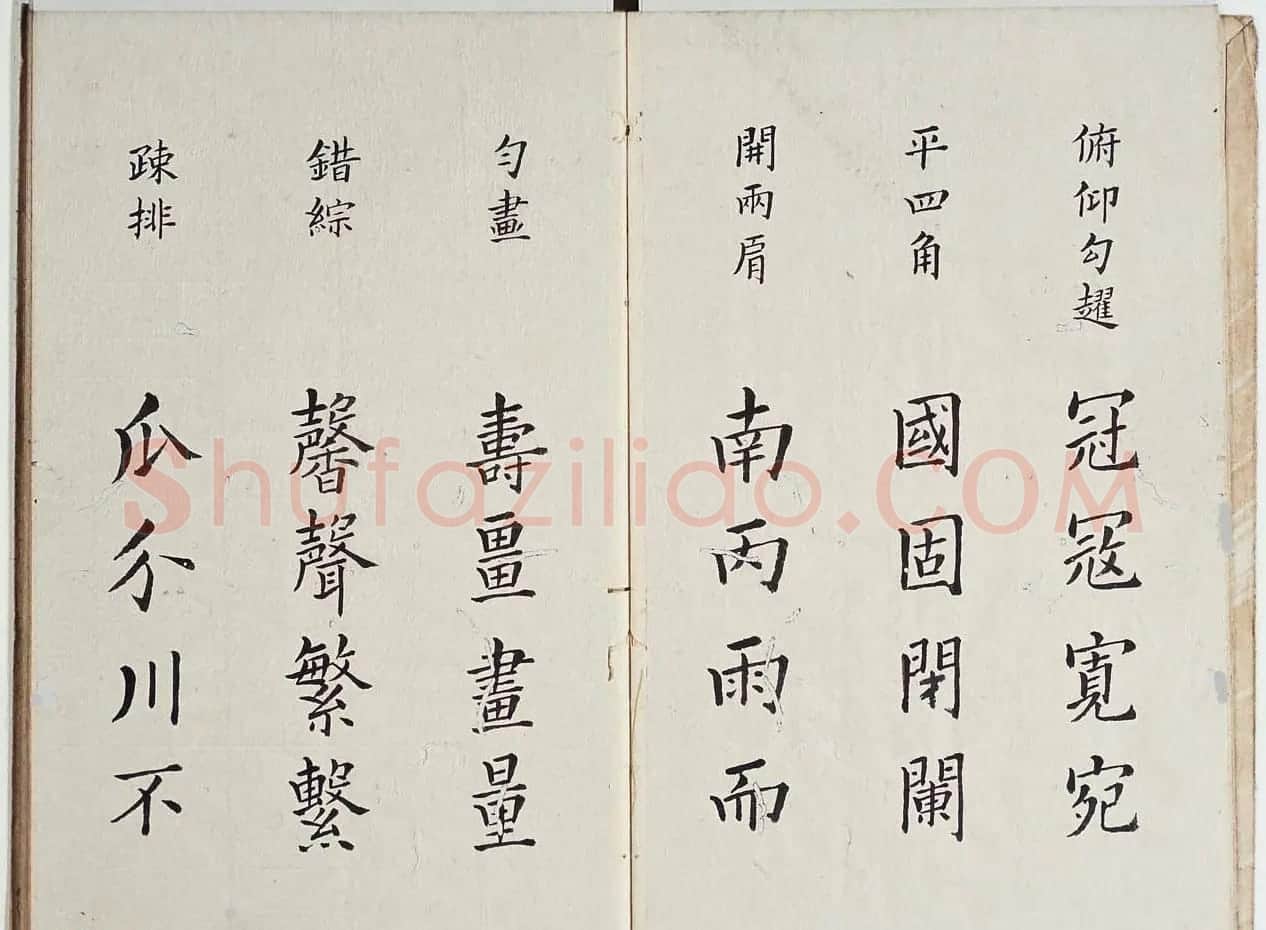 俯仰勾趯 冠冦寛宛
平四角 國固閉闌
開兩肩 南丙雨而
勻畫 壽畺畫量
錯綜 馨聲繁繫
疎排 爪介川不
Shufazilido.COM